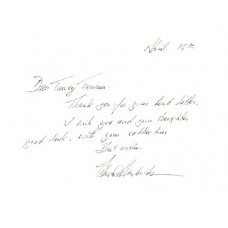 April 12th
Dear Tracey
Thank you for your kind letter.
I wish you and your daughter
good luck with your collection
Best wishes